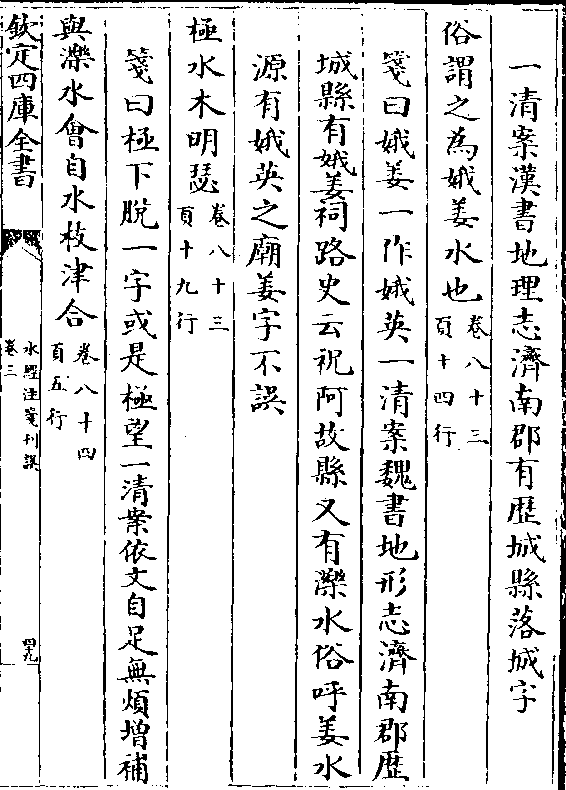 一清案漢書地理志濟南郡有歴城縣落城字
俗謂之為娥姜水也卷八十三頁十四行
箋曰娥姜一作娥英一清案魏書地形志濟南郡歴
城縣有娥姜祠路史云祝阿故縣又有濼水俗呼姜水
源有娥英之廟姜字不誤
極水木明瑟卷八十三頁十九行
箋曰極下脫一字或是極望一清案依文自足無煩增補
與濼水會自水枝津合卷八十四頁五行
欽定四庫全書
水經注箋刊誤
卷三
四九